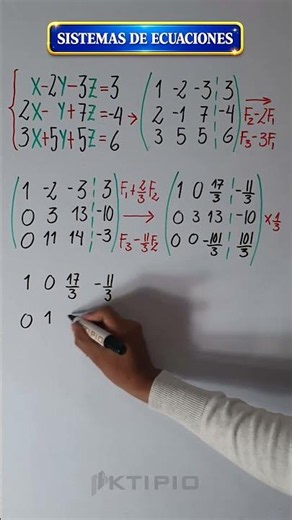 SISTEMAS DE ECUACIONES
X-2Y-3Z=3
2X-Y+7Z=-4
3X+5Y+5Z=6
1 -2 -3 3
2 -1 7 -4 F₂-2F₁
3 5 5 6 F₃-3F₁
1 -2 -3 3 F₁+2/3F₂
0 3 13 -10
0 11 14 -3 F₃-11/3F₂
1 0 17/3 -11/3
0 3 13 -10 ×1/3
0 0 -101/3 101/3
1 0 17/3 -11/3
0 1
KTIPIO